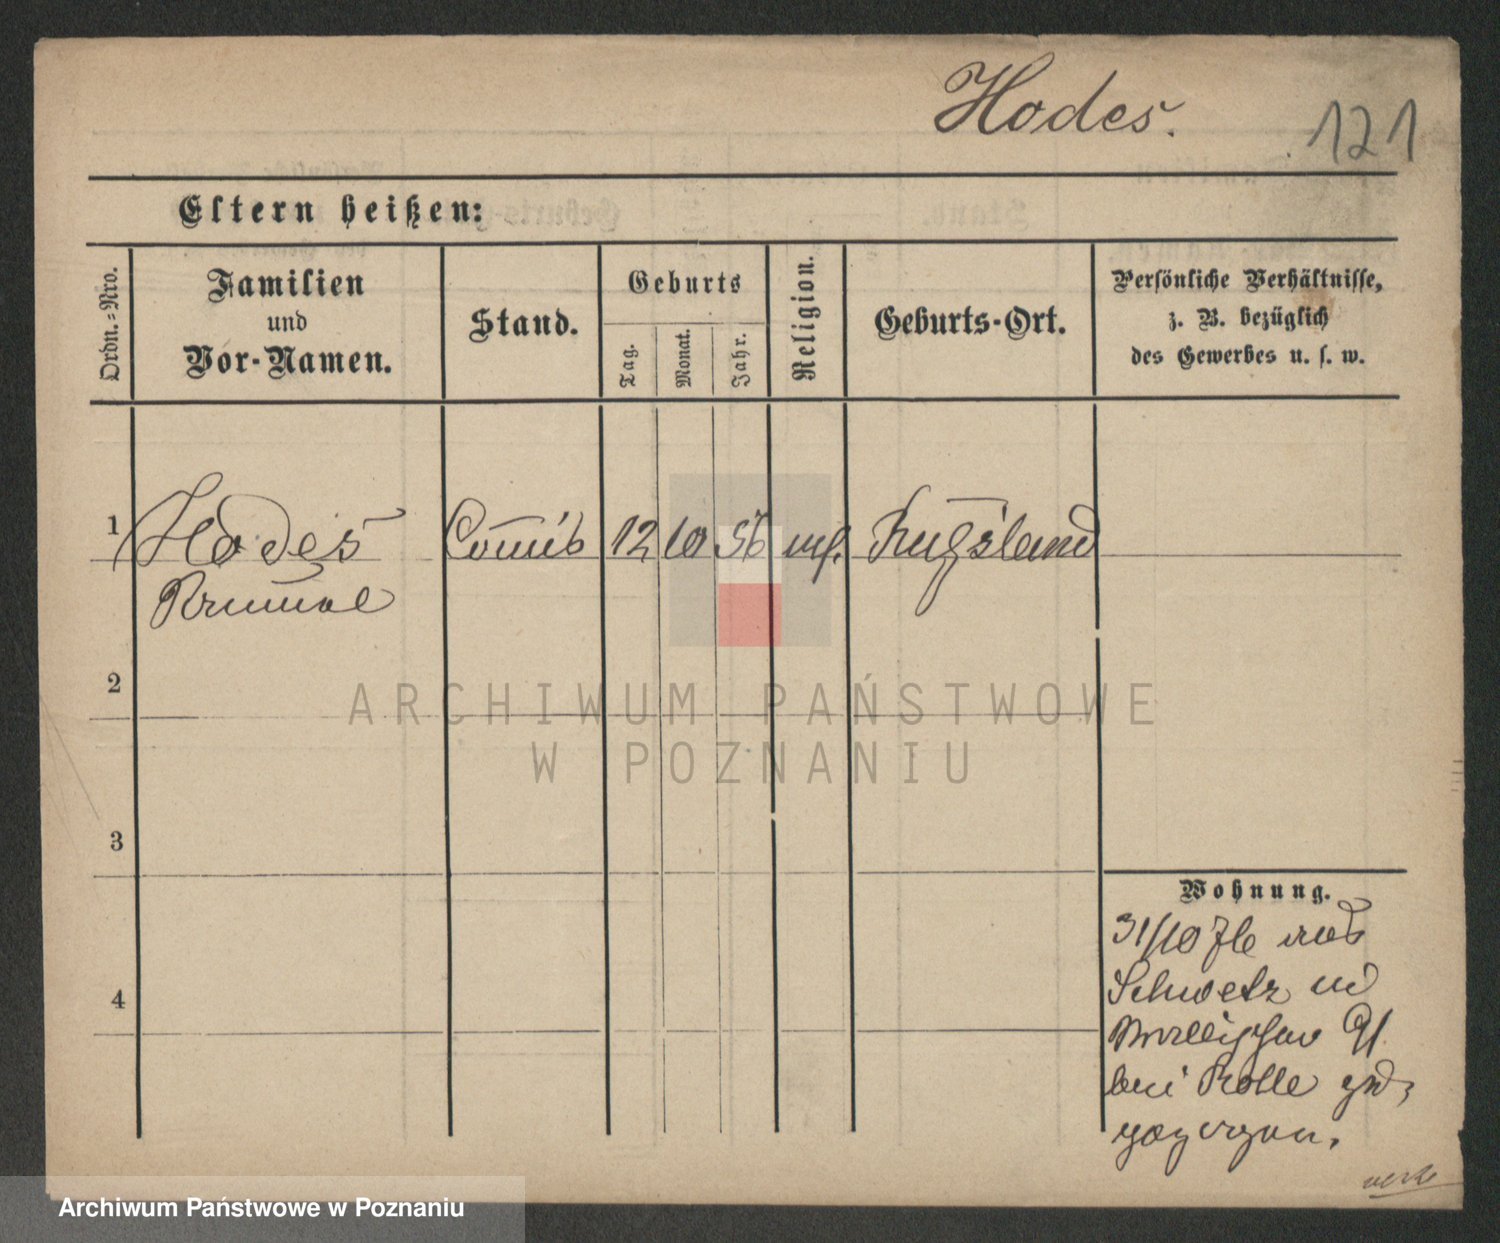 Hodes.
121
Eltern heißen:
Ordn.-Nro.
Familien
und
Vor-Namen.
Stand.
Geburts
Tag.
Monat.
Jahr.
Religion.
Geburts-Ort.
Persönliche Verhältnisse,
z. B. bezüglich
des Gewerbes u. s. w.
1 Hodes 12 10 56
2
3
4
Wohnung.
31/10 76 aus
Schwetz
bei Rolle
ARCHIWUM PAŃSTWOWE
W POZNANIU
Archiwum Państwowe w Poznaniu